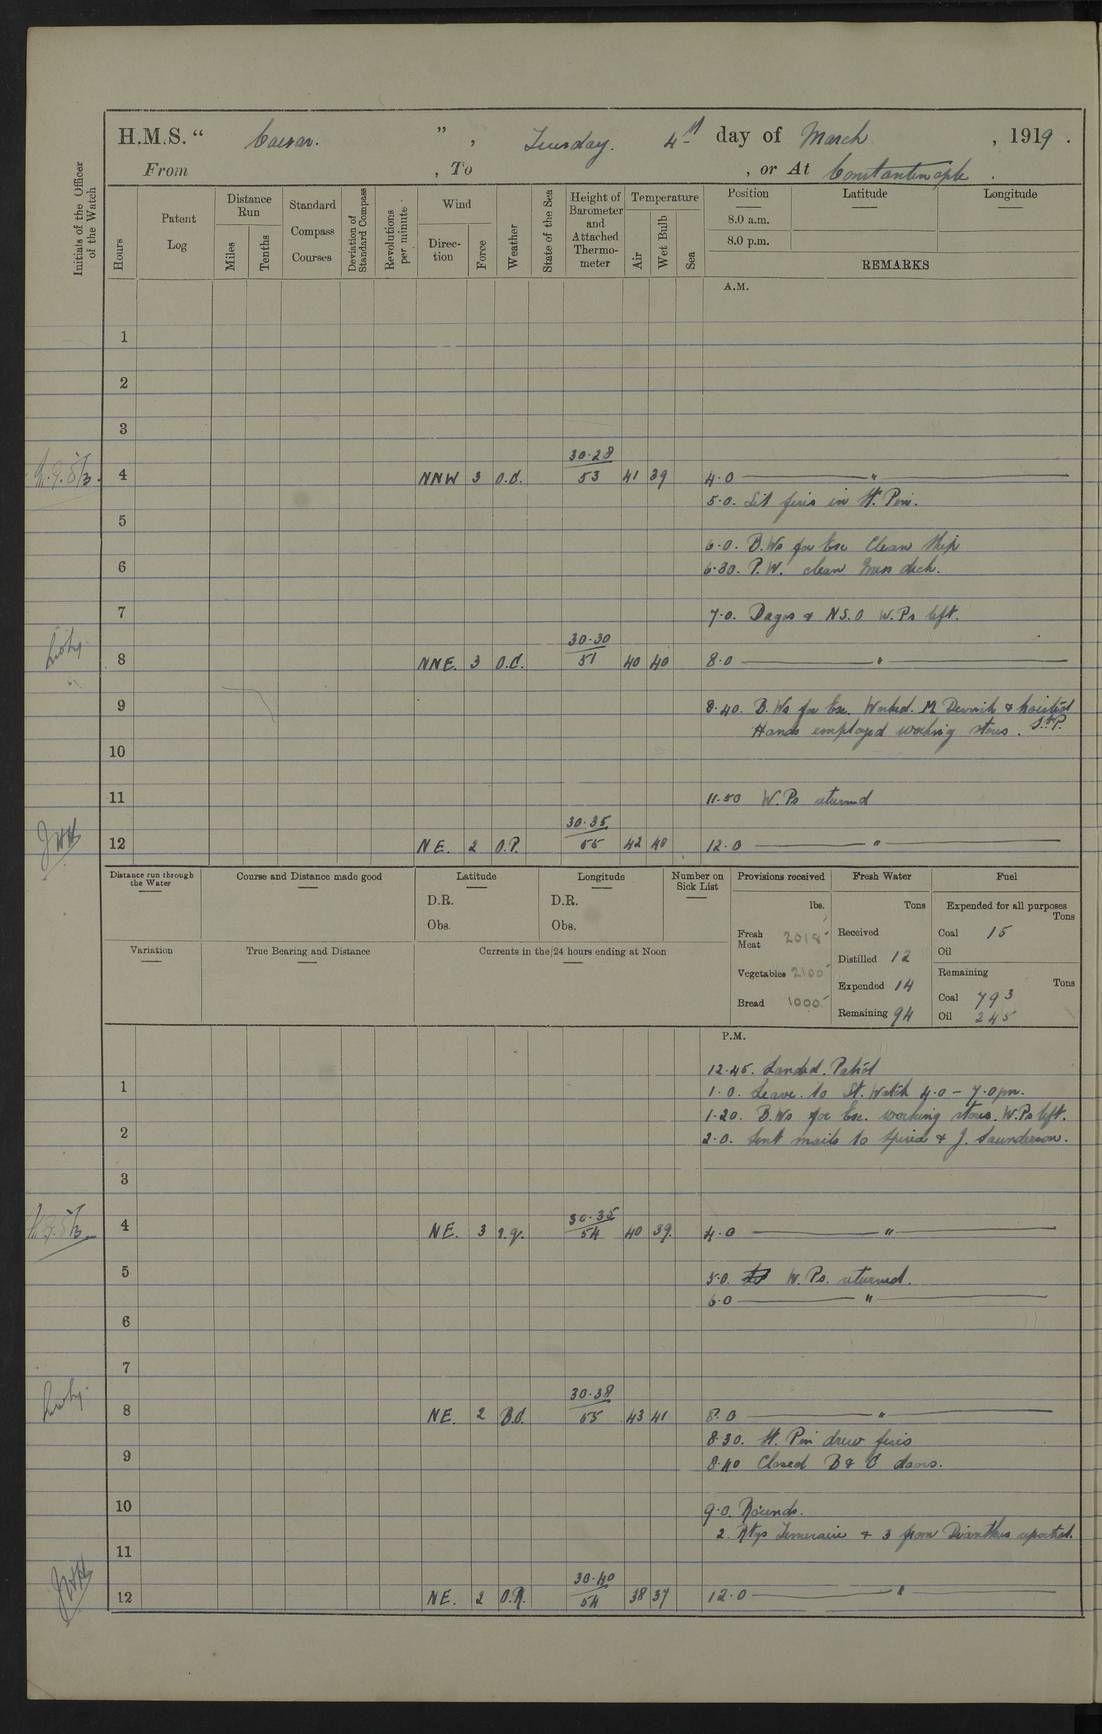 H.M.S. “ Caesar. ” , Tuesday. 4th day of March , 1919 .
From , To , or At Constantinople .
Initials of the Officer of the Watch
Hours
Patent Log
Distance Run
Miles
Tenths
Standard Compass Courses
Deviation of Standard Compass
Revolutions per minute
Wind
Direction
Force
Weather
State of the Sea
Height of Barometer and Attached Thermometer
Temperature
Air
Wet Bulb
Sea
Position Latitude Longitude
8.0 a.m.
8.0 p.m.
REMARKS
A.M.
1
2
3
4 NNW 3 O.C. 30·28 53 41 39 4·0 "
5·0. Lit fires in St. Pin.
5
6·0. B.Ws for Exc Clean Ship
6 6·30. P.W. clean mess deck.
7 7·0. Dagos & N.S.O W.Ps left.
8 NNE. 3 O.C. 30·30 51 40 40 8·0 "
9 8·40. B.Ws for Exc. Worked. M Derrick & hoisted St. P.
Hands employed working stores.
10
11 11·50 W.Ps returned
12 NE. 2 O.P. 30·35 55 42 40 12·0 "
Distance run through the Water
Course and Distance made good
Latitude
D.R.
Obs.
Longitude
D.R.
Obs.
Number on Sick List
Provisions received
lbs.
Fresh Meat 2018
Vegetables 2100
Bread 1000
Fresh Water
Tons
Received
Distilled 12
Expended 14
Remaining 94
Fuel
Expended for all purposes
Tons
Coal 15
Oil
Remaining
Tons
Coal 793
Oil 245
Variation
True Bearing and Distance
Currents in the 24 hours ending at Noon
P.M.
12·45. Landed. Patrol
1 1·0. Leave to St. Watch 4·0 – 7·0 pm.
1·20. B.Ws for Exc. working stores. W.Ps left.
2 2·0. Sent mails to Spirea & J. Saunderson.
3
4 NE. 3 30·35 54 40 39. 4·0 "
5 5·0. W.Ps. returned.
6·0 "
6
7
8 NE. 2 B.C. 30·38 55 43 41 8·0 "
8·30. St. Pin drew fires
9 8·40 Closed B & C doors.
10 9·0. Rounds.
2 Rtgs Temeraire & 3 from Dianthus reported.
11
12 NE. 2 O.R. 30·40 54 38 37 12·0 "